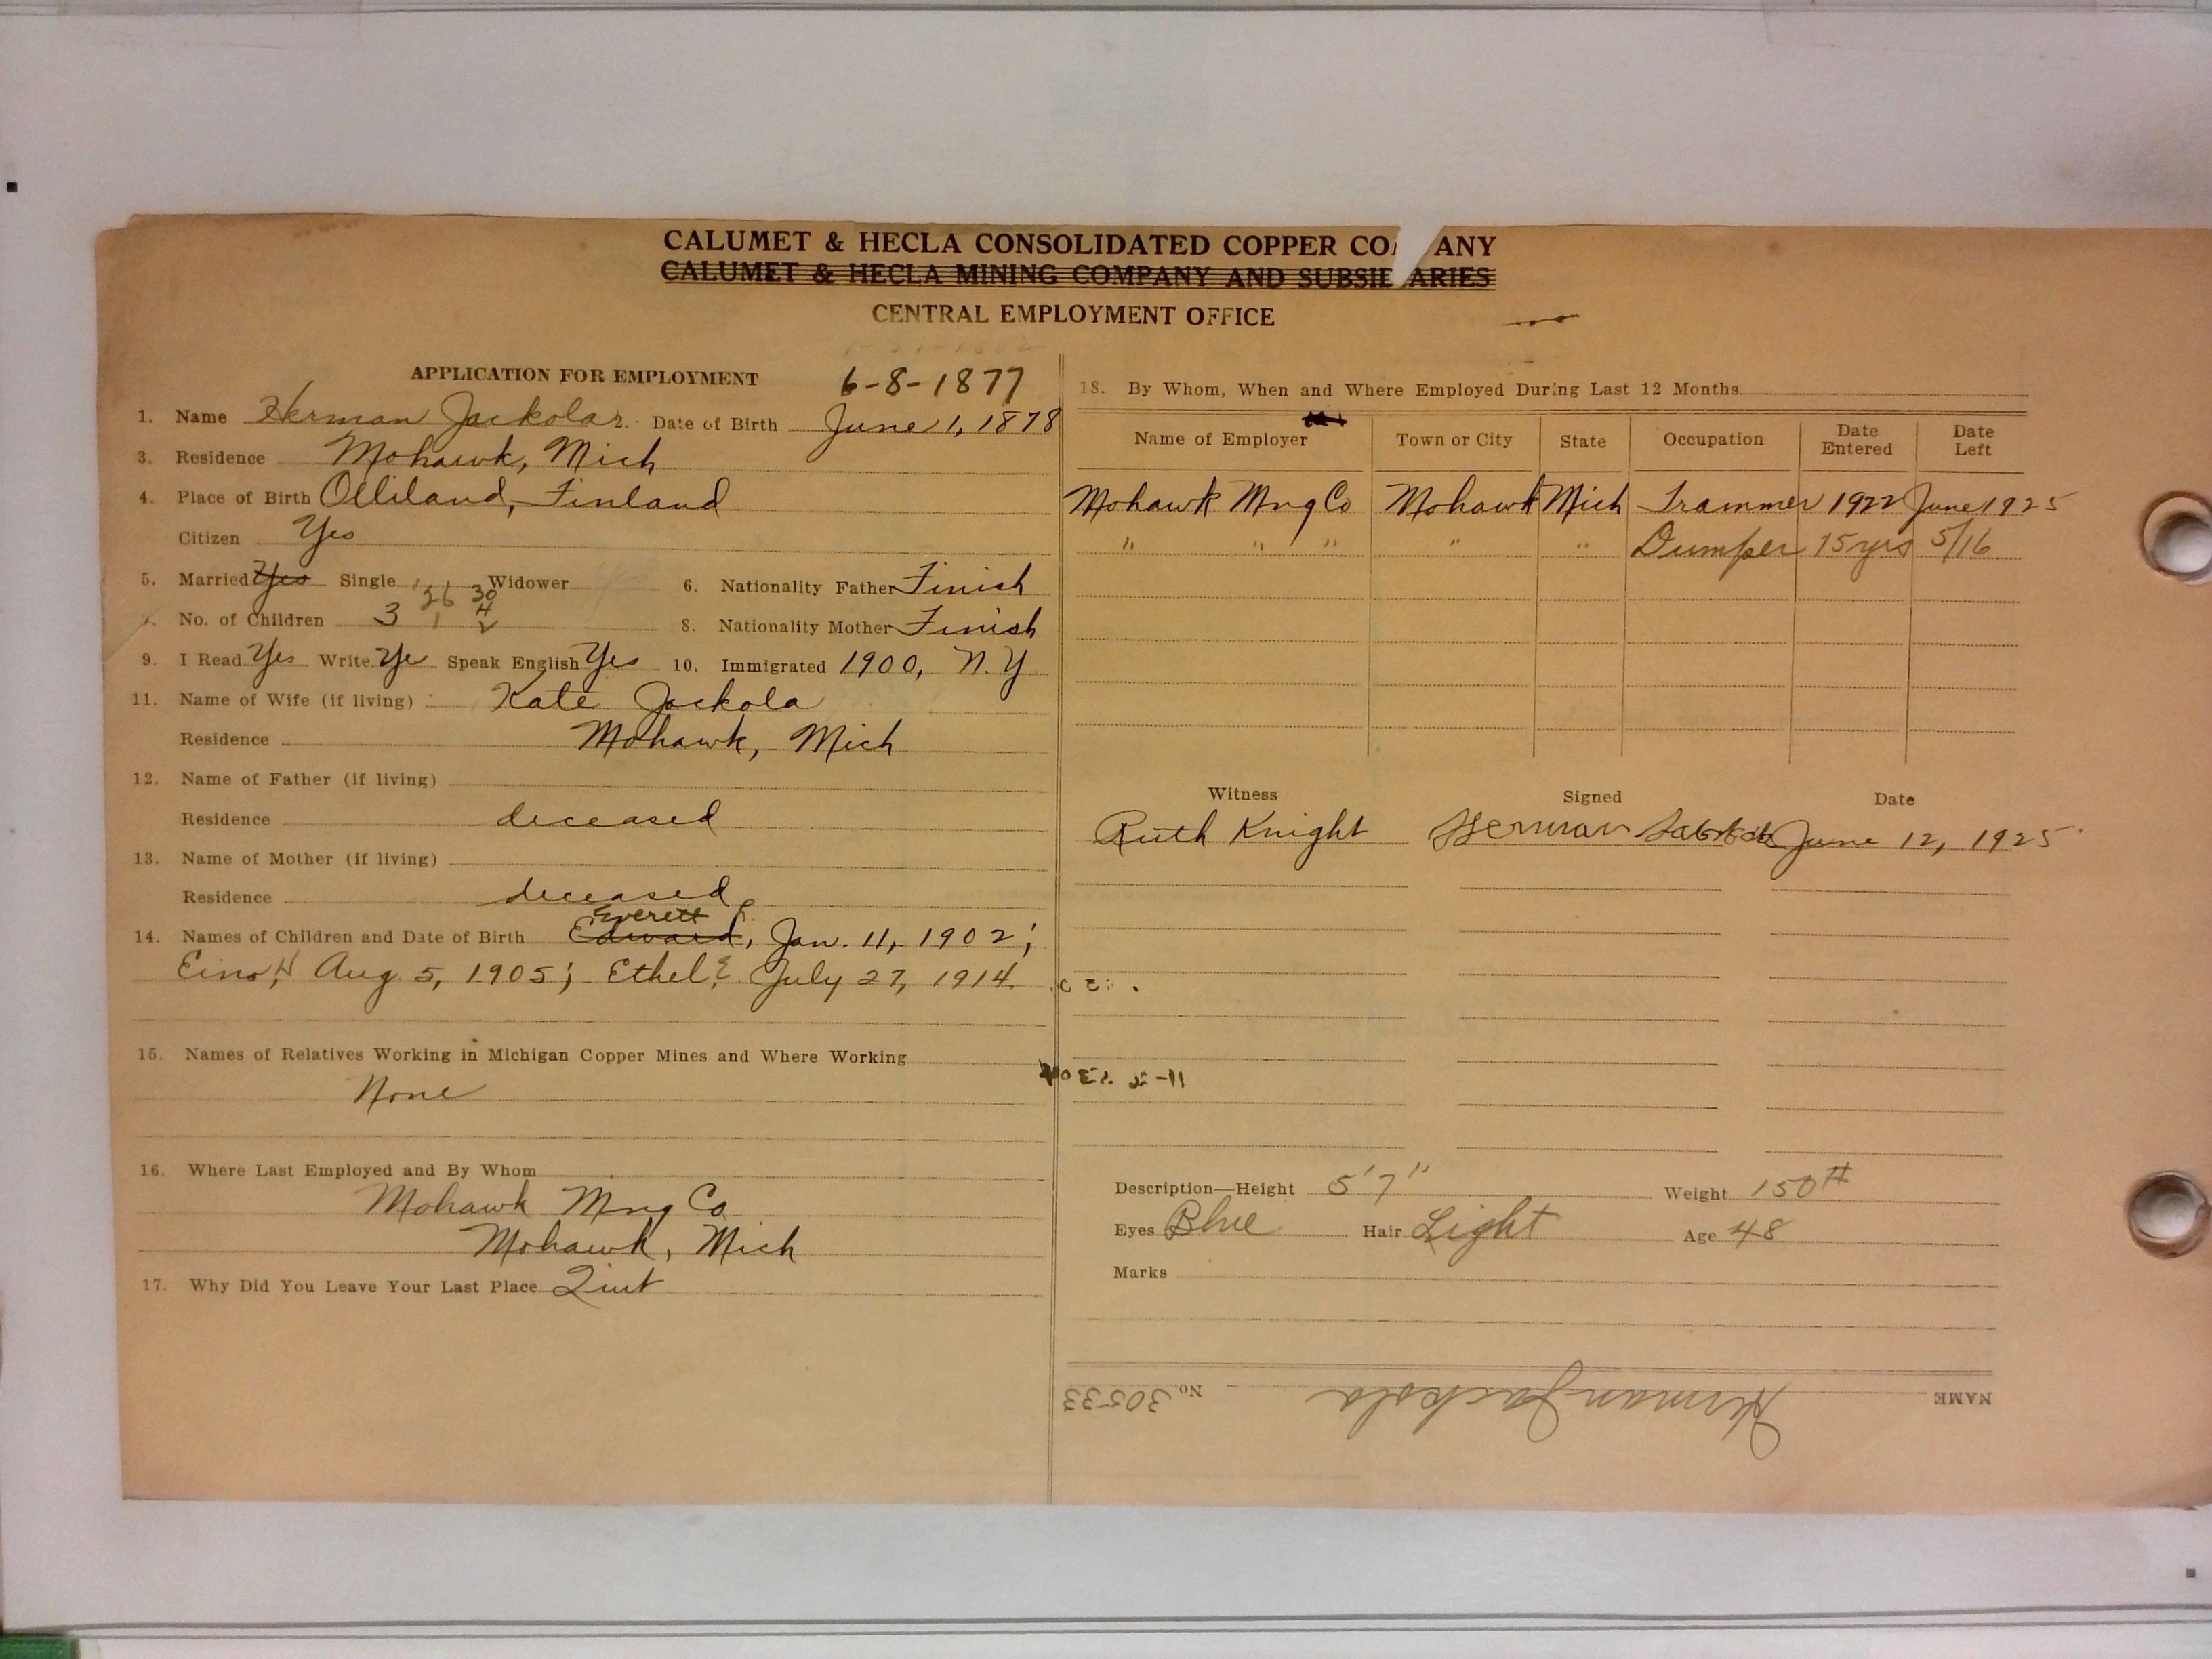 CALUMET & HECLA CONSOLIDATED COPPER CO ANY
CALUMET & HECLA MINING COMPANY AND SUBSIDIARIES
CENTRAL EMPLOYMENT OFFICE
APPLICATION FOR EMPLOYMENT 6-8-1877
1. Name Herman Jackola 2. Date of Birth June 1, 1878
3. Residence Mohawk, Mich
4. Place of Birth Olliland, Finland
Citizen Yes
5. Married Yes Single Widower 6. Nationality Father Finish
7. No. of Children 3 8. Nationality Mother Finish
9. I Read Yes Write Ye Speak English Yes 10. Immigrated 1900, N.Y
11. Name of Wife (if living) Kate Jackola
Residence Mohawk, Mich
12. Name of Father (if living)
Residence deceased
13. Name of Mother (if living)
Residence deceased
Everett
14. Names of Children and Date of Birth Edward, Jan. 11, 1902;
Eino, H Aug. 5, 1905; Ethel, E July 27, 1914.
15. Names of Relatives Working in Michigan Copper Mines and Where Working
None
16. Where Last Employed and By Whom
Mohawk Mng Co
Mohawk, Mich
17. Why Did You Leave Your Last Place Quit
18. By Whom, When and Where Employed During Last 12 Months
Name of Employer Town or City State Occupation Date Entered Date Left
Mohawk Mng Co Mohawk Mich Trammer 1922 June 1925
" " " " " Dumper 15 yrs 5/16
Witness Signed Date
Ruth Knight Herman June 12, 1925
Description—Height 5'7" Weight 150#
Eyes Blue Hair Light Age 48
Marks
NAME Herman Jackola No. 30533